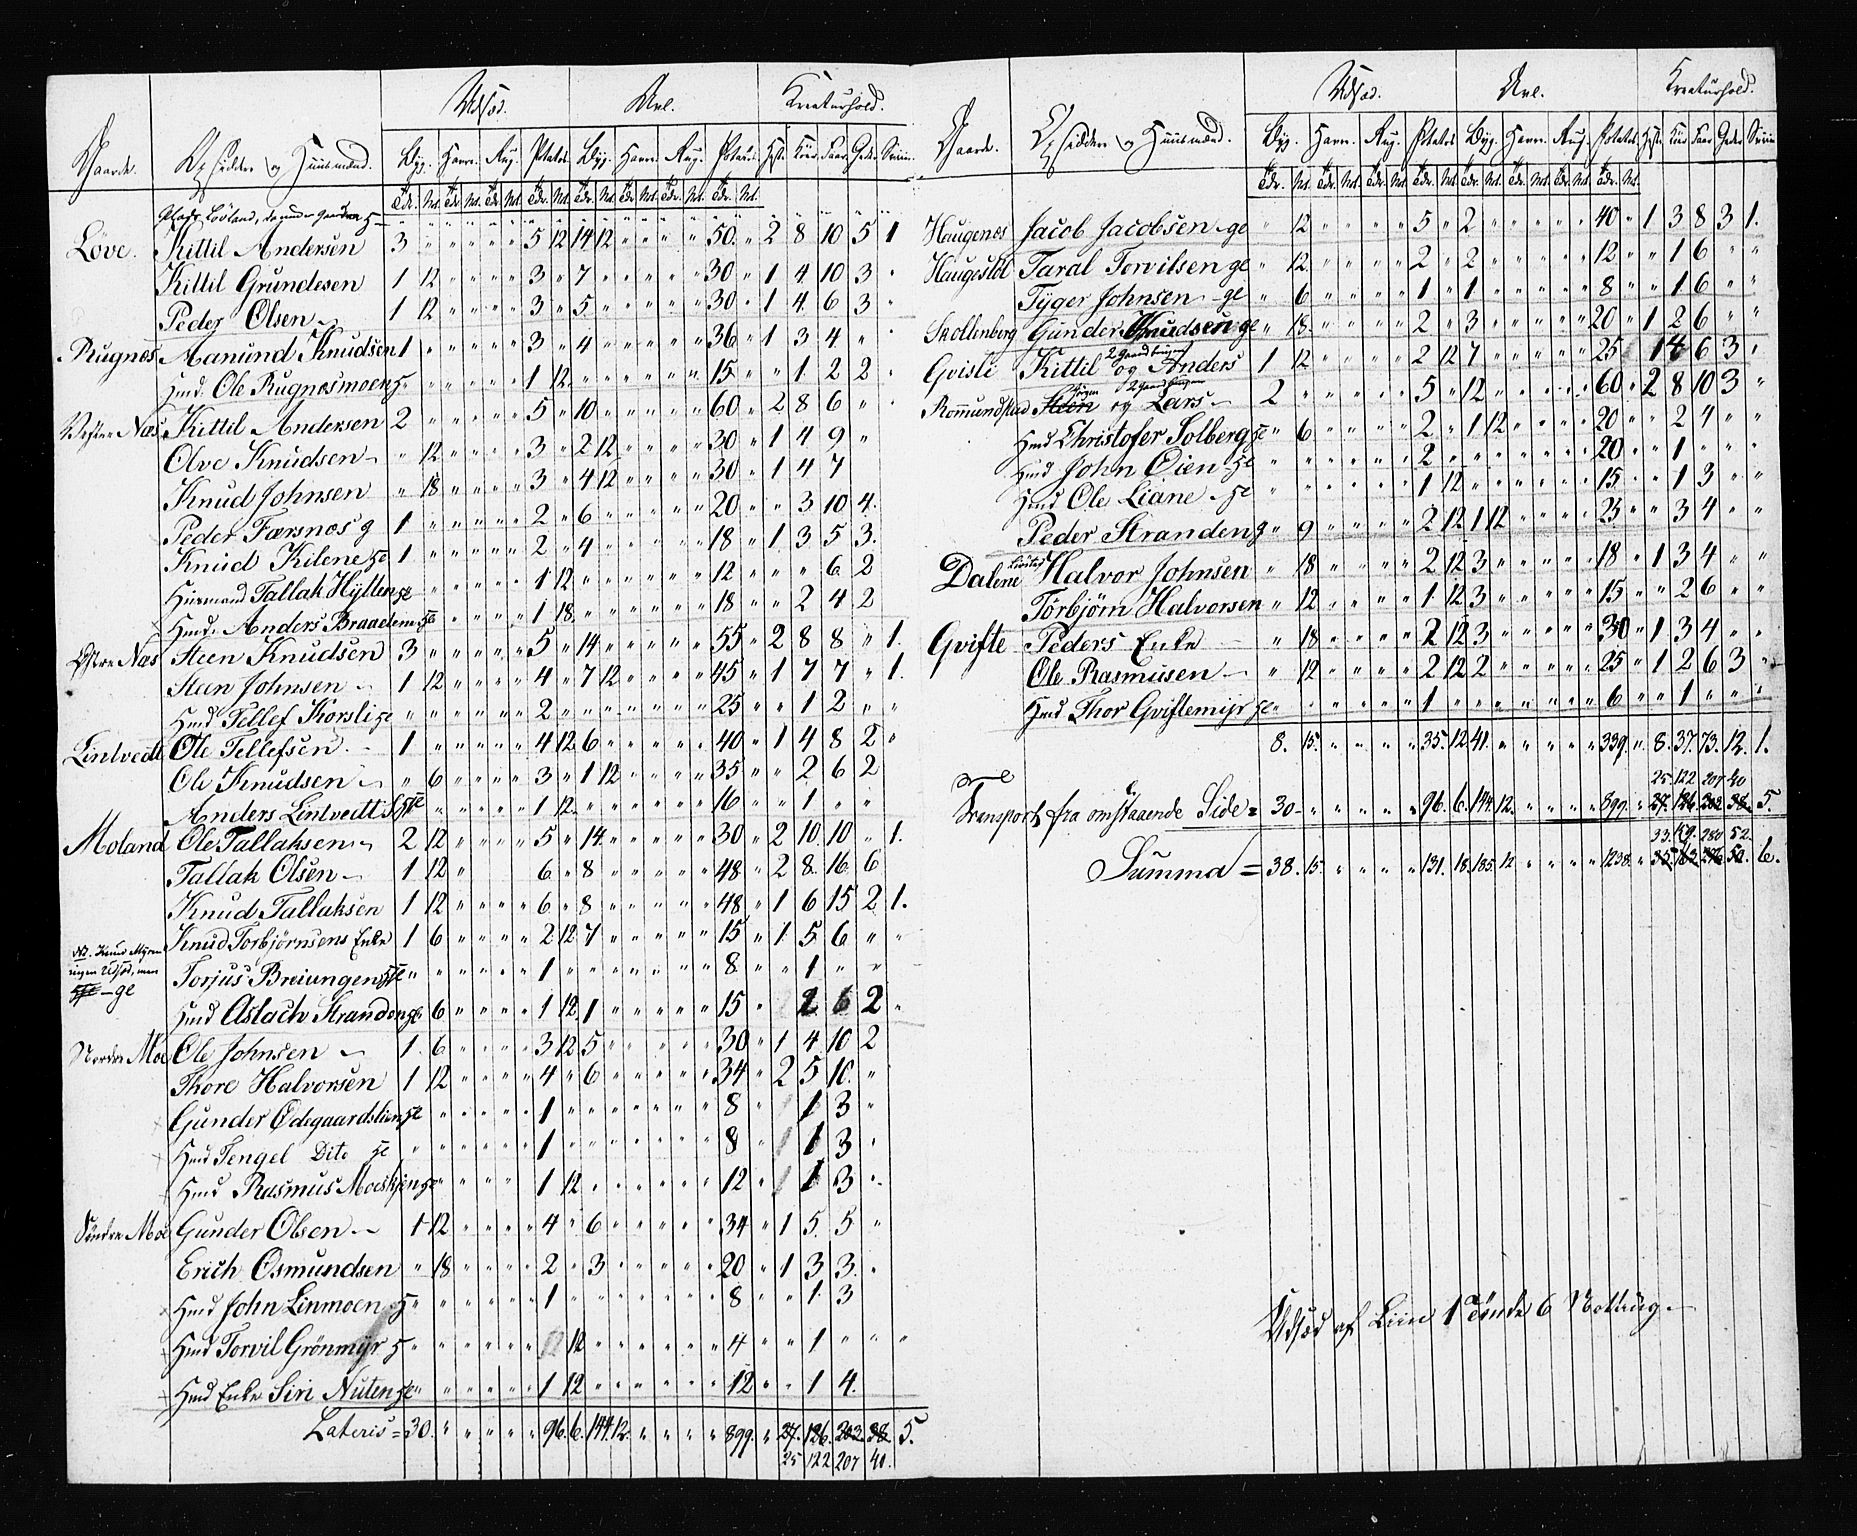 Udsæd. Avl. Kreaturhold.
Gaarde. Opsiddere og Huusmænd. Byg. Havre. Rug. Potates. Byg. Havre. Rug. Potates. Heste. Kiør. Faar. Geder. Sviin.
Tdr. Sk. Tdr. Sk. Tdr. Sk. Tdr. Sk. Tdr. Sk. Tdr. Sk. Tdr. Sk. Tdr. Sk.
Løve. Kittil Andersen 3 " " " " " 5 12 14 12 " " " " 50. " 2 8 10 5 1
Kittil Grundesen 1 12 " " " " 3 " 7 " " " " " 30 " 1 4 10 3 "
Peder Olsen 1 12 " " " " 3 " 5 " " " " " 30 " 1 4 6 3 "
Rugnæs Manund Knudsen 1 " " " " " 3 " 4 " " " " " 36 " 1 3 4 " "
Hmd. Ole Rugnæsmoen " " " " " " 1 12 " " " " " " 15 " " 1 2 2 "
Vestre Næs Kittil Andersen 2 " " " " " 5 " 10 " " " " " 60 " 2 8 6 " "
Olve Knudsen " 12 " " " " 3 " 2 12 " " " " 30 " 1 4 9 "
Knud Johnsen " 18 " " " " 3 " 4 12 " " " " 30 " 1 4 7
Peder Færsnæs g 1 " " " " " 2 " 6 " " " " " 20 " " 3 10 4.
Knud Kilene 1 " " " " " 2 " 4 " " " " " 18 " 1 3 5 3.
Huusmand Tallak Hylten " " " " " " 1 12 " " " " " " 12 " " " 6 2
Hmd. Anders Braaelem " " " " " " 1 18 " " " " " " 18 " " 2 4 2
Østre Næs Steen Knudsen 3 " " " " " 5 " 14 " " " " " 55 " 2 8 8 " 1.
Steen Johnsen 1 12 " " " " 4 " 7 12 " " " " 45 " 1 7 7 " 1.
Hmd Tellef Korsli " " " " " " 2 " " " " " " " 25 " " 1 2 " "
Lintvedt Ole Tellefsen 1 " " " " " 4 12 6 " " " " " 40 " 1 4 8 2 "
Ole Knudsen " 6 " " " " 3 " 1 12 " " " " 35 " " 2 6 2
Anders Lintvedt " " " " " " 1 12 " " " " " " 16 " " 1 " "
Moland Ole Tallaksen 2 12 " " " " 5 " 14 " " " " " 30 " 2 10 10 " 1.
Tallak Olsen 1 12 " 6 " 8 " " " " " 48 " 2 8 16 6
Knud Tallaksen 1 12 " " " " 6 " 8 " " " " " 48 " 1 6 15 2 1.
Knud Torbjørnsens Enke 1 6 " " " " 2 12 7 " " " " " 15 " 1 5 6 " "
NB. Knud Myren
ingen Udsæd, men
ge
Torjus Breiungen " " " " " " 1 " " " " " " " 8 " " 1 " "
Hmd Aslach Stranden " 6 " " " " 1 12 1 " " " " " 15 " 2 6 2 "
Nordre Moe Ole Johnsen 1 6 " " " " 3 12 5 " " " " " 30 " 1 4 10 2
Thore Halvorsen 1 12 " " " " 4 " 6 " " " " " 34 " 2 5 10 "
Gunder Ødegaardslien " " " " " " 1 " " " " " " " 8 " 1 3 "
Hmd Tengel Dito " " " " " " 1 " " " " " " " 8 " 1 3 "
Hmd Rasmus Moeskjen " " " " " " 1 12 " " " " " " 12 " 1 3 "
Søndre Moe Gunder Olsen 1 12 " " " " 4 " 6 " " " " " 34 " 1 5 5 "
Erich Osmundsen " 18 " " " " 2 " 3 " " " " " 20 " 1 3 3 "
Hmd John Linmoen " " " " " " 1 " " " " " " " 8 " " 1 3
Hmd Torvil Grønmyr " " " " " " 12 " " " " " " 4 " " 1 " " "
Hmd Enke Siri Nuten " " " " " " 1 12 " " " " " " 12 " " 1 4.
Lateris = 30. " " " " " 96. 6. 144. 12. " " " " 899. " 27. 126. 202. 38. 5.
25 122 207 40.
Udsæd. Avl. Kreaturhold.
Gaarde. Opsiddere og Huusmænd. Byg. Havre. Rug. Potates. Byg. Havre. Rug. Potates. Heste Kiør Faar Geder Sviin
Tdr. Sk. Tdr. Sk. Tdr. Sk. Tdr. Sk. Tdr. Sk. Tdr. Sk. Tdr. Sk. Tdr. Sk.
Haugenes Jacob Jacobsen ge " 12 " " " " 5 " 2 " " " " " 40 " 1 3 8 3 1.
Haugestøl Taral Torvilsen ge " 12 " " " " 2 " 2 " " " " " 12 " " 1 6 " "
Tyger Johnsen ge " 6 " " " " 1 " 1 " " " " " 8 " " 1 6 " "
Skollenberg Gunder Knudsen ge " 18 " " " " 2 " 3 " " " " " 20 " 1 2 6 " "
2 gaardbruger
Gvisli Kittil og Anders 1 12 " " " " 2 12 7 " " " " " 25 1 4 6 3 "
Romundstad Steen og Lars 2 " " " " " 5 " 12 " " " " " 60 " 2 8 10 3 "
Hmd Christofer Solberg " 6 " " " " 2 " 1 12 " " " " 20 " " 2 4 " "
Hmd John Øien " " " " " " 2 " " " " " " " 20 " " 1 " " "
Hmd Ole Liane " " " " " " 1 12 " " " " " " 15 " " 1 3 " "
Peder Stranden " 9 " " " " 2 12 1 12 " " " " 25 " " 3 4 " "
Dalene Halvor Johnsen " 18 " " " " 2 12 3 " " " " " 18 " 1 3 4 " "
Torbjørn Halvorsen " 12 " " " " 1 12 3 " " " " " 15 " " 2 6 " "
Gvifte Peders Enke " 18 " " " " 2 12 3 " " " " " 30 " 1 3 4 " "
Ole Rasmusen " 12 " " " " 2 12 2 " " " " " 25 " 1 2 6 3 "
Hmd Thor Gviftemyr " " " " " " 1 " " " " " " " 6 " " 1 " " "
8. 15. " " " " 35. 12 41. " " " " " 339. " 8. 37. 73. 12. 1.
25 122 207 40
Transport fra omstaaende Side = 30 " " " " " 96. 6. 144. 12. " " " " 899. " 27. 126. 202. 38. 5.
33. 159. 280 52.
Summa = 38. 15. " " " " 131. 18. 185. 12 " " " " 1238. " 35. 163. 276 50. 6.
Udsæd af Liin 1 Tønde 6